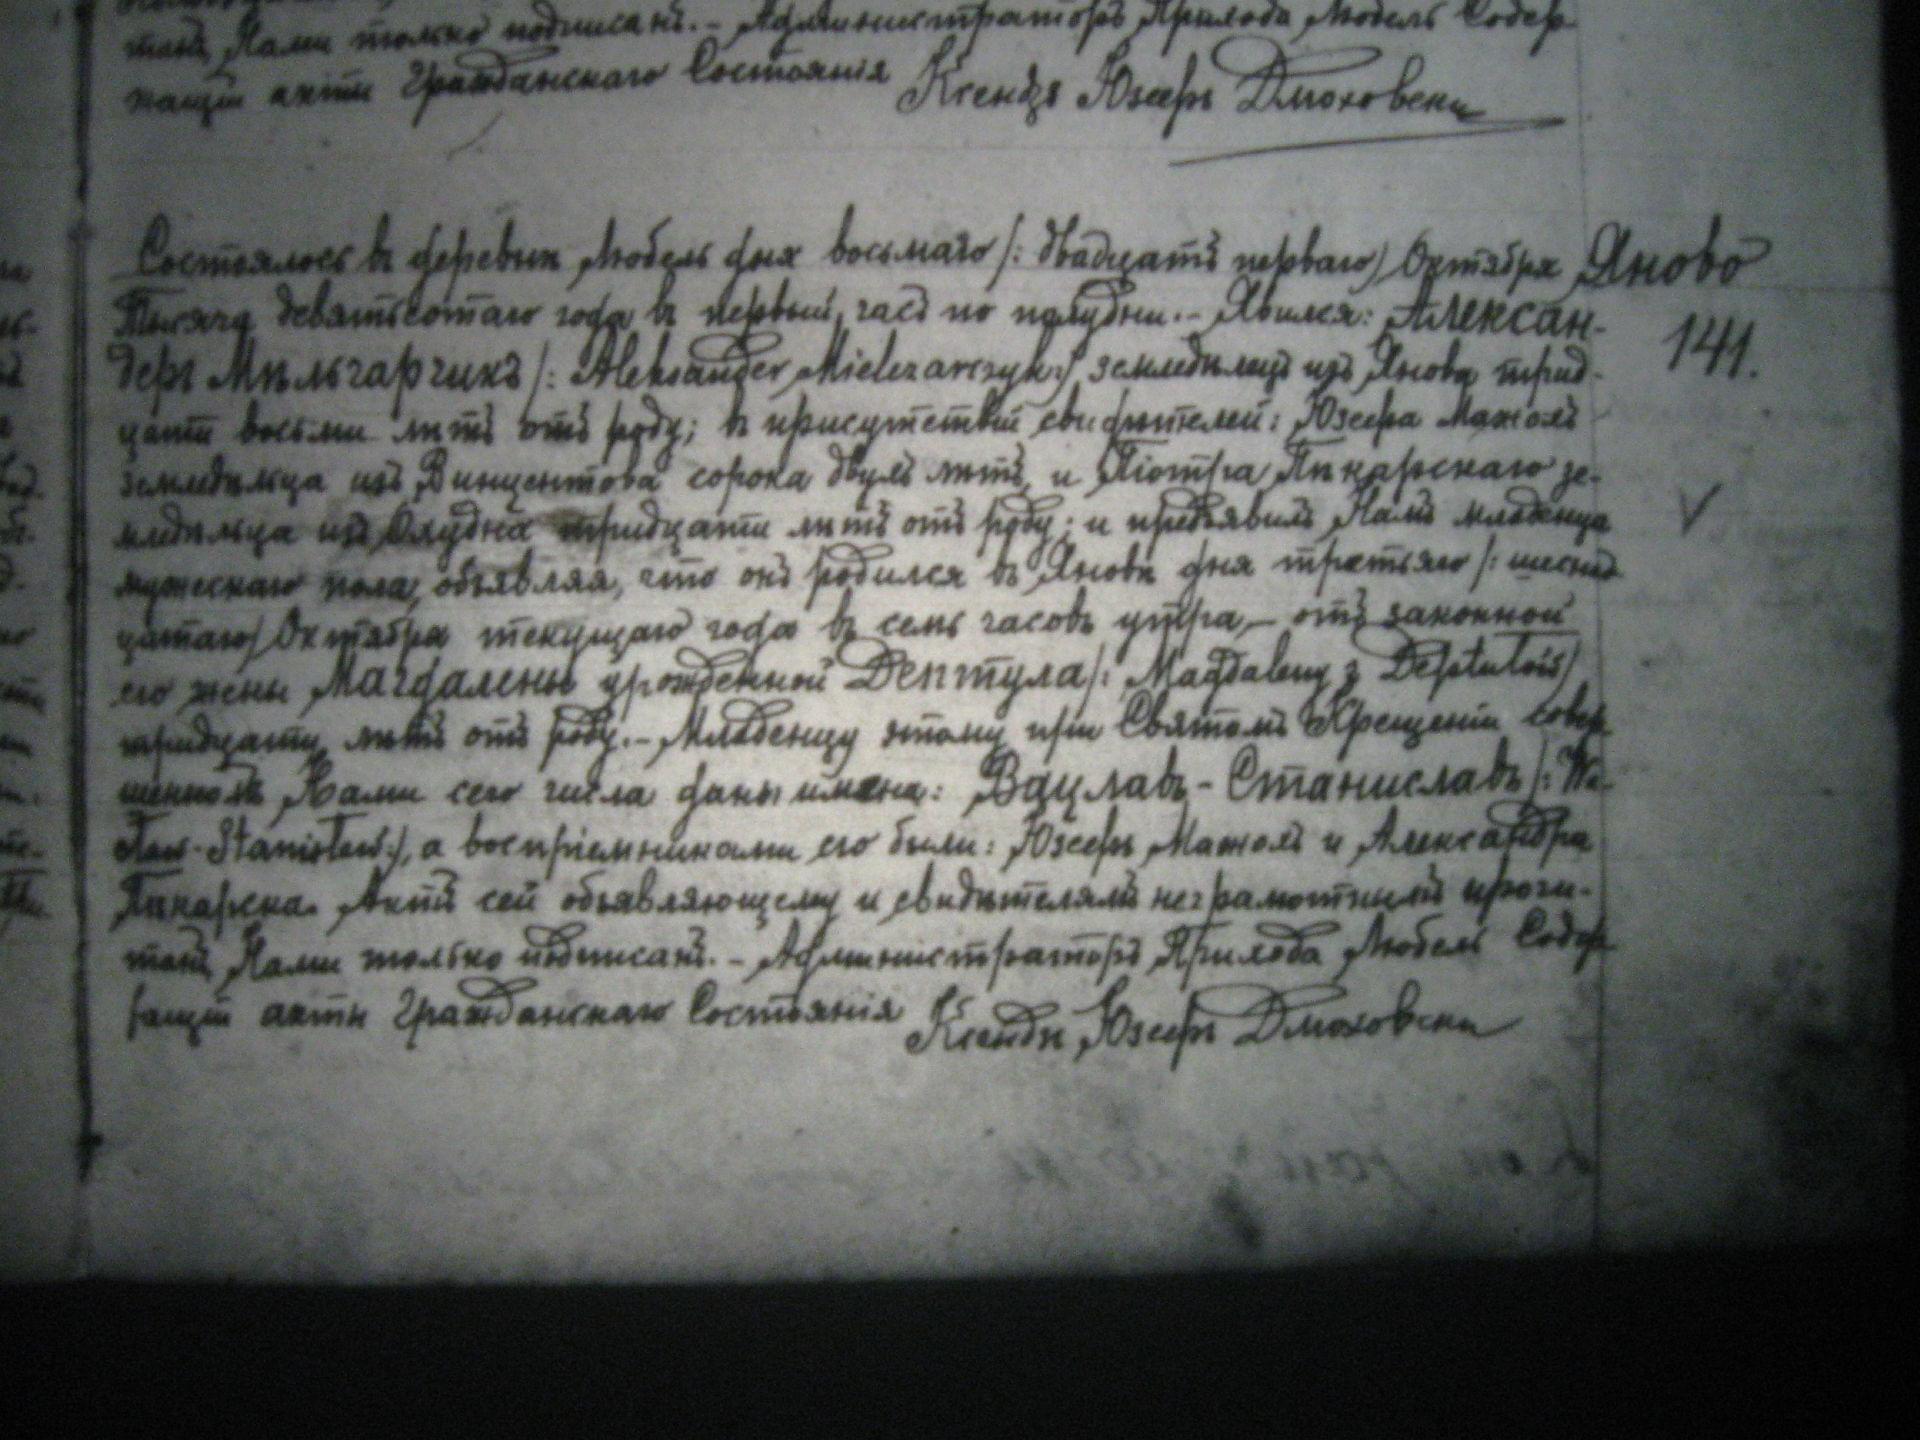 тан, Нами только подписанъ. – Администраторъ Прихода Любель Содер-
жащiй акты Гражданскаго Состоянiя Ксендзъ Юзефъ Дмоховски
Яново
141.
Состоялось въ деревнѣ Любель дня восьмаго /: двадцать перваго) Октября
Тысяча девятьсотаго года въ первый часъ по полудни. – Явился: Алексан-
деръ Мѣльчарчикъ /: Aleksander Mielczarczyk:/ земледѣлецъ изъ Янова трид-
цати восьми лѣтъ отъ роду; въ присутствiи свидѣтелей: Юзефа Мажолъ
земледѣльца изъ Винцентова сорока двухъ лѣтъ, и Пiотра Пѣкарскаго зе-
мледѣльца изъ тридцати лѣтъ отъ роду; и предъявилъ Намъ младенца
мужескаго пола, объявляя, что онъ родился въ Яновѣ дня третьяго /: шеснад-
цатаго) Октября текущаго года въ семь часовъ утра, – отъ законной
его жены Магдалены урожденной Дептула /: Magdaleny z Deptułów)
тридцати лѣтъ отъ роду. – Младенцу этому при Святомъ Крещенiи совер-
шенномъ Нами сего числа даны имена: Вацлавъ-Станиславъ /: Wa-
cław-Stanisław:), а воспрiемниками его были: Юзефъ Мажолъ и Александра
Пѣкарска. Актъ сей объявляющему и свидѣтелямъ неграмотнымъ прочи-
танъ, Нами только подписанъ. – Администраторъ Прихода Любель Содер-
жащiй акты Гражданскаго Состоянiя Ксендзъ Юзефъ Дмоховски